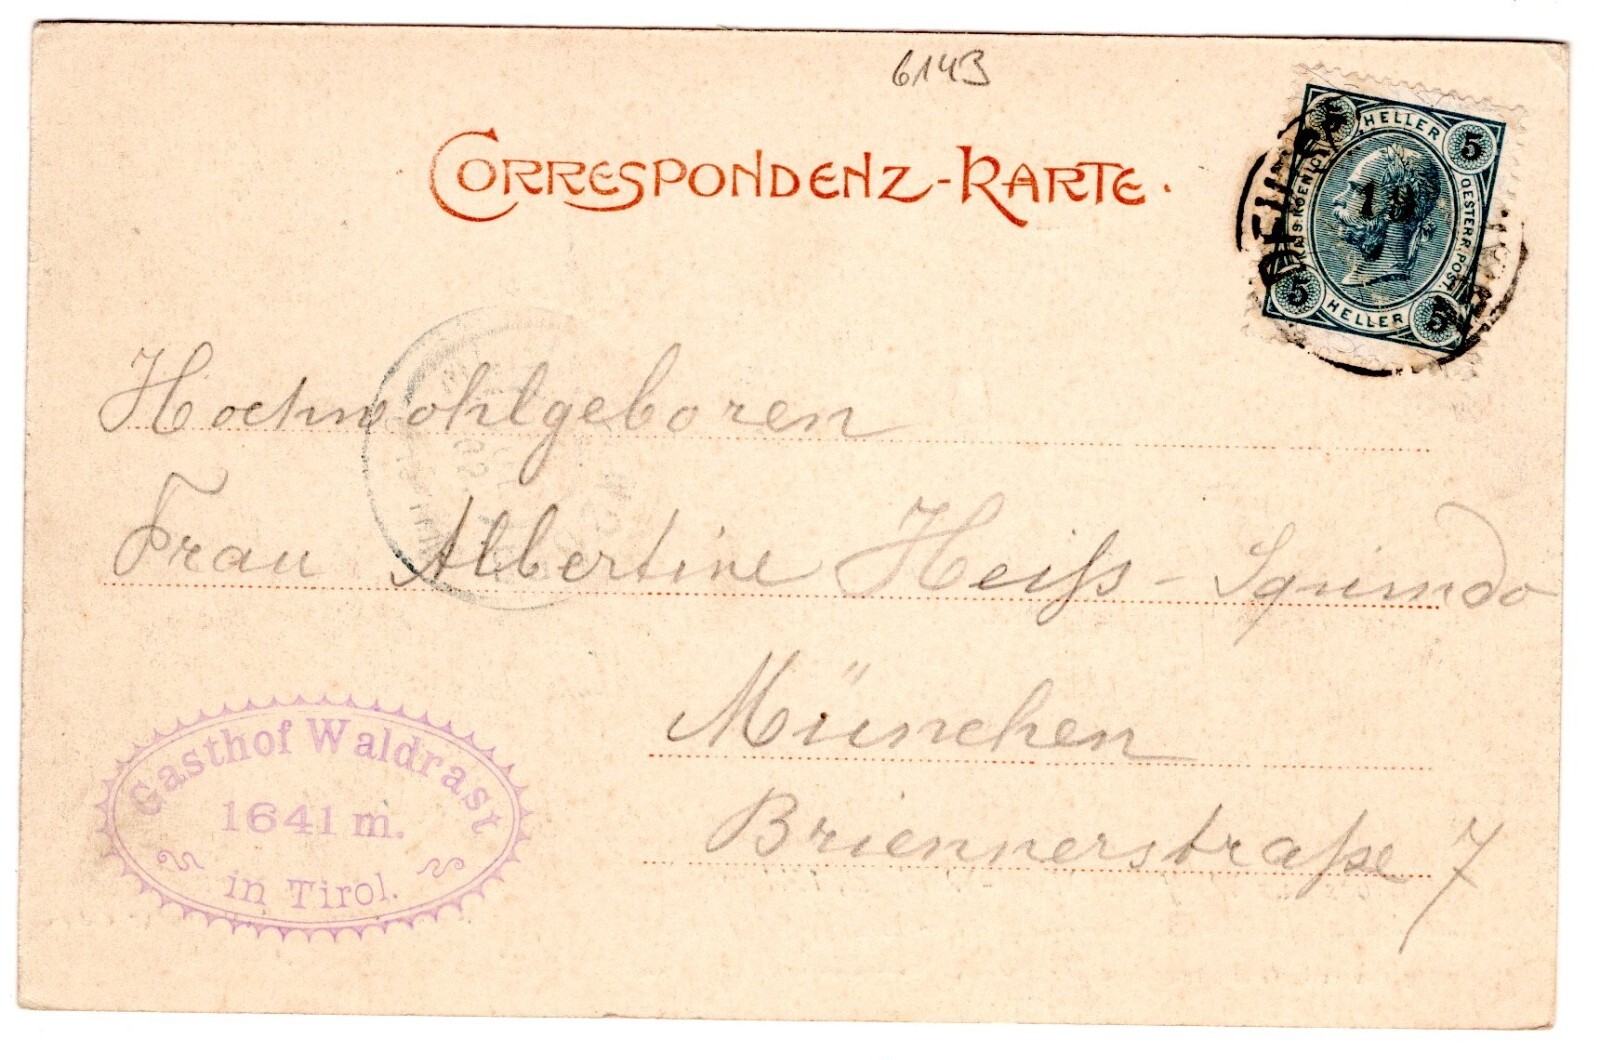 6143
CORRESPONDENZ-KARTE.
HELLER
5
5
KAIS. KOENIGL.
OESTERR. POST.
19
5
5
HELLER
Hochwohlgeboren
Frau Albertine Heiß-
München
Briennerstraße 7
Gasthof Waldrast
1641 m.
in Tirol.